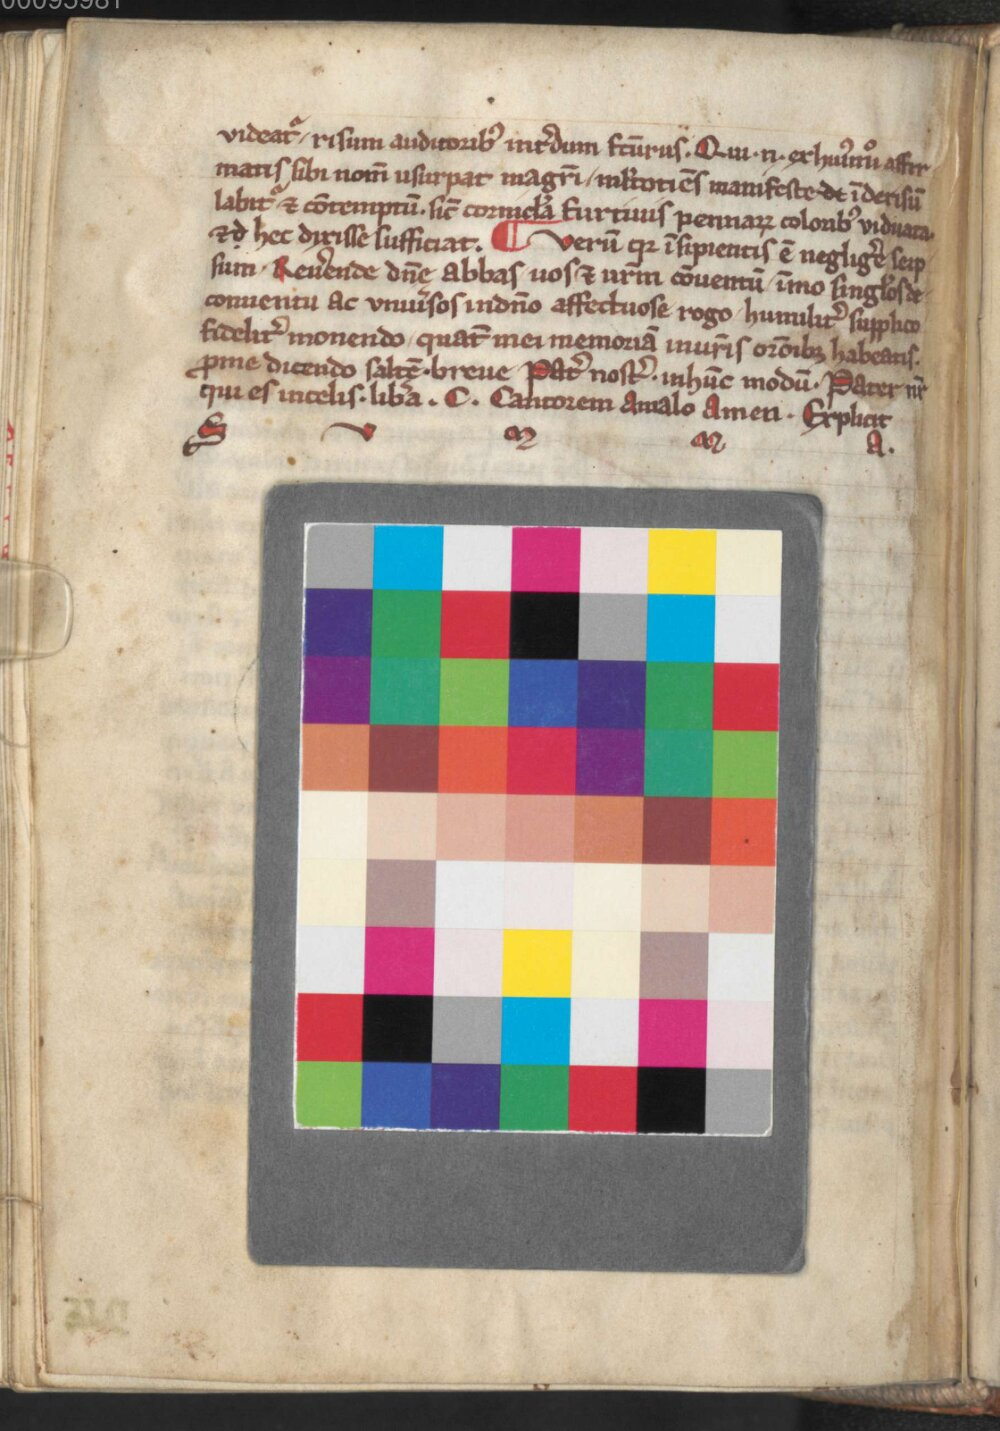 00095981
videat᷑ / risum auditoribꝰ int᷑dum fcūrus. Qui .n. ex huiꝰmōi affir
matis sibi nom̄ usurpat magr̄i / ml̄tociēs manifeste īderisū
labit᷑ ⁊ cōtemptū. sic̄ cornicl̓a furtiuis pennaꝝ coloribꝰ viduata.
hec dixisse sufficiat. Verū qꝛ īsipientis ē neglig̓e seip
sum. Reuerende dn̄e abbas uos ⁊ ur̄m cōuentū / īmo singl̓os de
conuentu ac vniu̓sos indn̄o affectuose rogo / humilit᷑ supplico
fidelit᷑ monendo / quat̄ mei memoriā inur̄is or̄onibꝫ habeatis.
ꝓ me dicendo saltē breue Pat᷑ nost᷑. inhūc modū. Pater nr̄
qui es incelis. lib̓a. C. Cantorem amalo Amen. Explicit
S v m m A.